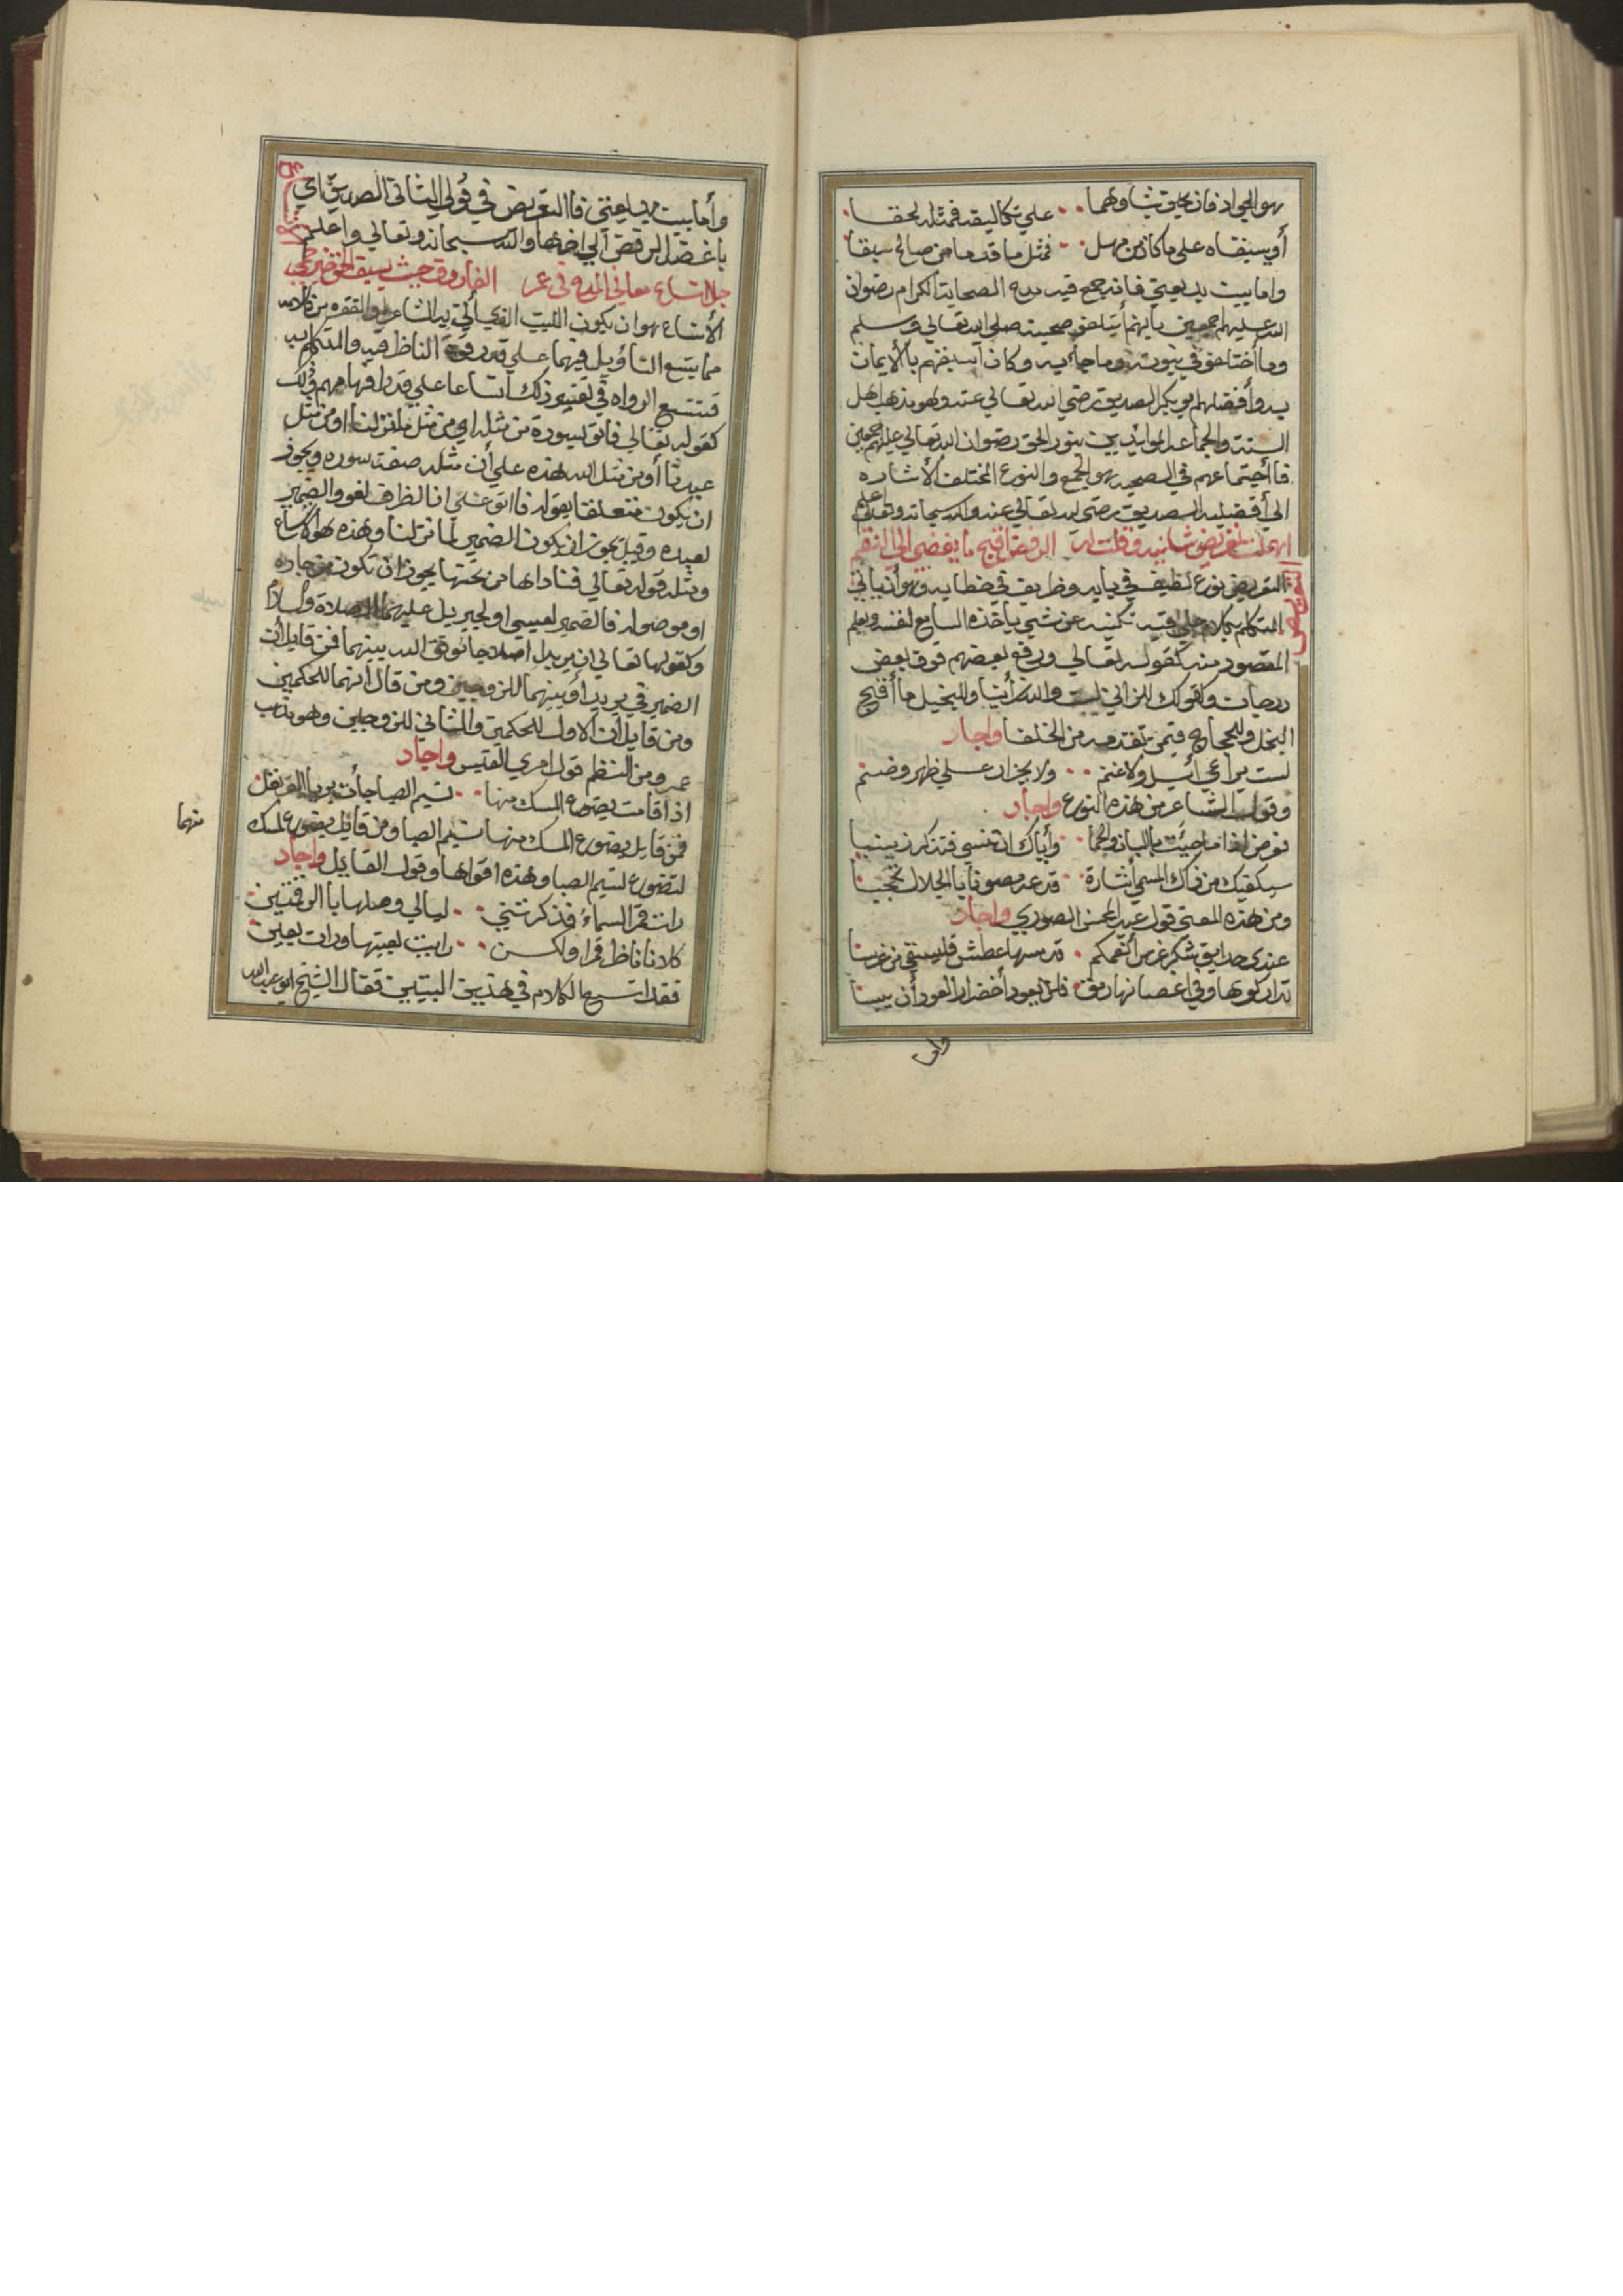 هو الجواد فان يلحق بشاوهما علي تكاليفه فمثله لحقا
أو يسبقاه علي ما كان من مهل فمثل ما قدما من صالح سبقا
واما بيت بديعيتي فانه جمع فيه مدح الصحابة الكرام رضوان
الله عليهم اجمعين بأنهم أيتلفو في صحبته صلي الله تعالي وسلم
وما أختلفو في نبوته وما جأ به وكان أسبقهم بألايمان
به وأفضلهم ابو بكر الصديق رضي الله تعالي عنه وهو مذهب اهل
السنة والجماعه المؤايدين بنور الحق رضوان الله تعالي عليهم اجمعين
فاأجتماعهم في الصحبه هو الجمع والنوع المختلف ألأشاره
الي أفضلية الصديق رضي الله تعالي عنه والله سبحانه وتعالي اعلم
تعريض شانيه وقلت له الرفض اقبح ما يفضي الي النقم
التعريض نوع لطيف في بابه وظريف في خطابه وهو أن يأتي
المتكلم بكلام فيه تكنيه عن شي يأخذه السامع لنفسه ويعلم
المقصود منه كقوله تعالي ورفع بعضهم فوق بعض
درجات وكقولك للزاني لست والله زأنيا وللبخيل ما أقبح
البخل وللحجاج فيمن تقدمه من الخلفا واجاد
لست براعي أبل ولا غنم ولا بجزار علي ظهر وضم
وقول الشاعر من هذه النوع واجاد
تعرض اذا ما جيئت بالبان والحما وأياك ان تنسي فتذكر زينبا
سيكفيك من ذاك المسمي أشارة فدعه مصونا بالجلال محجبا
ومن هذه المعني قول عبد المحسن الصوري واجاد
عندي حدايق شكر غرس أنعمكم قد مسها عطش فليسقي من غرسا
تداركوها وفي اغصانها رمق فلن يعود أخضرار العود أن يبسا
واما
وأما بيت بديعيتي فاالتعريض في قولي الثاني الصديق اي
يا غضل الرفض الي اخرها والله سبحانه وتعالي واعلم
اتساع معاني المدح في عمر الفاروق حيث يسبق الحق خير
ألأتساع هو ان يكون البيت الذي أتي به الشاعر والفقره من كلامه
مما يتسع التأويل فيهما علي قدر قوة الناظر فيه والمتكلم به
فتتسع الرواه في تفسير ذلك اتساعا علي قدر افهامهم في ذلك
كقوله تعالي فأتو بسورة من مثله اي من مثل ما نزلنا او من مثل
عبدنا أو من مثل الله هذه علي أن مثله صفة سوره ويجوز
ان يكون متعلقا بقوله فااتو علي ان الظرف لغو والضمير
لعبده وقيل يجوز ان يكون الضمير لما نزلنا وهذه هو الاتساع
ومثله قوله تعالي فناداها من تحتها يجوز ان تكون من جاره
او موصوله فالضمير لعيسي او لجبريل عليهما الصلاة والسلام
وكقوله تعالي ان يريدا اصلاحا يوفق الله بينهما فمن قايل أن
الضمير في يريدا أو بينهما للزوجين ومن قال انهما للحكمين
ومن قايل ان الاول للحكمين والثاني للزوجين وهو مذهب
عمر ومن النظم قول امري القيس واجاد
اذا قامت يضوع المسك منها نسيم الصبا جأت بريا القرنفل
فمن قايل يضوع المسك منها نسيم الصبا ومن قايل يضوع المسك
منهما
لتضوع نسيم الصبا وهذه اقواها وقول القايل واجاد
رات قمر السماء فذكرتني ليالي وصلها باالرقمتين
كلانا ناظر قمرا ولكن رايت بعينها ورات بعيني
فقد اتسع الكلام في هذين البيتين فقال الشيخ ابو عبد الله